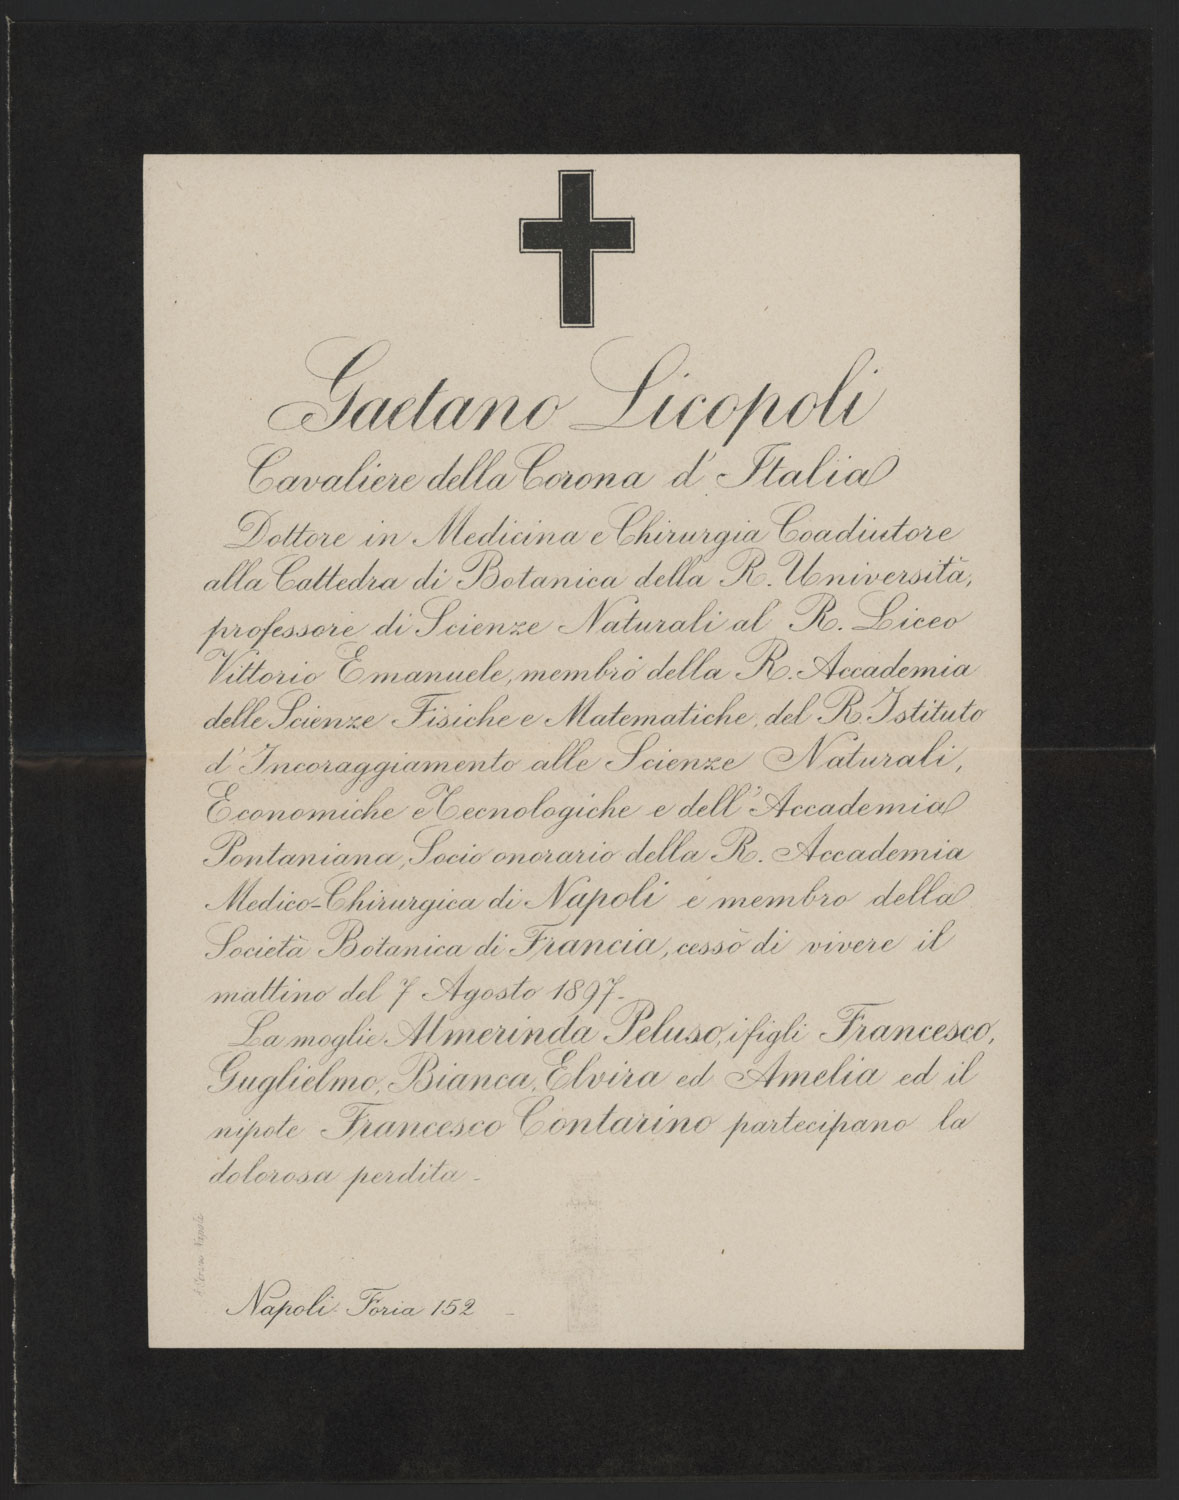 Gaetano Licopoli
Cavaliere della Corona d'Italia
Dottore in Medicina e Chirurgia Coadiutore
alla Cattedra di Botanica della R. Università,
professore di Scienze Naturali al R. Liceo
Vittorio Emanuele, membro della R. Accademia
delle Scienze Fisiche e Matematiche, del R. Istituto
d'Incoraggiamento alle Scienze Naturali,
Economiche e Tecnologiche e dell'Accademia
Pontaniana, Socio onorario della R. Accademia
Medico-Chirurgica di Napoli e membro della
Società Botanica di Francia, cessò di vivere il
mattino del 7 Agosto 1897-
La moglie Almerinda Peluso, i figli Francesco,
Guglielmo, Bianca, Elvira ed Amelia ed il
nipote Francesco Contarino partecipano la
dolorosa perdita-
Napoli- Foria 152